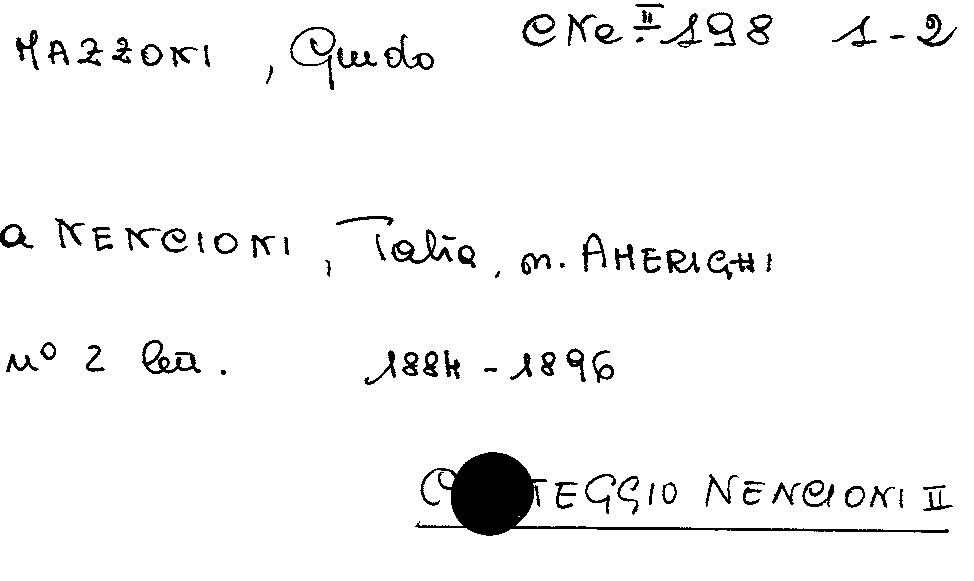 MAZZONI, Guido CNe. II 198 1-2
a NENCIONI, Talia, n. AMERIGHI
n° 2 lett. 1884 - 1896
C TEGGIO NENCIONI II